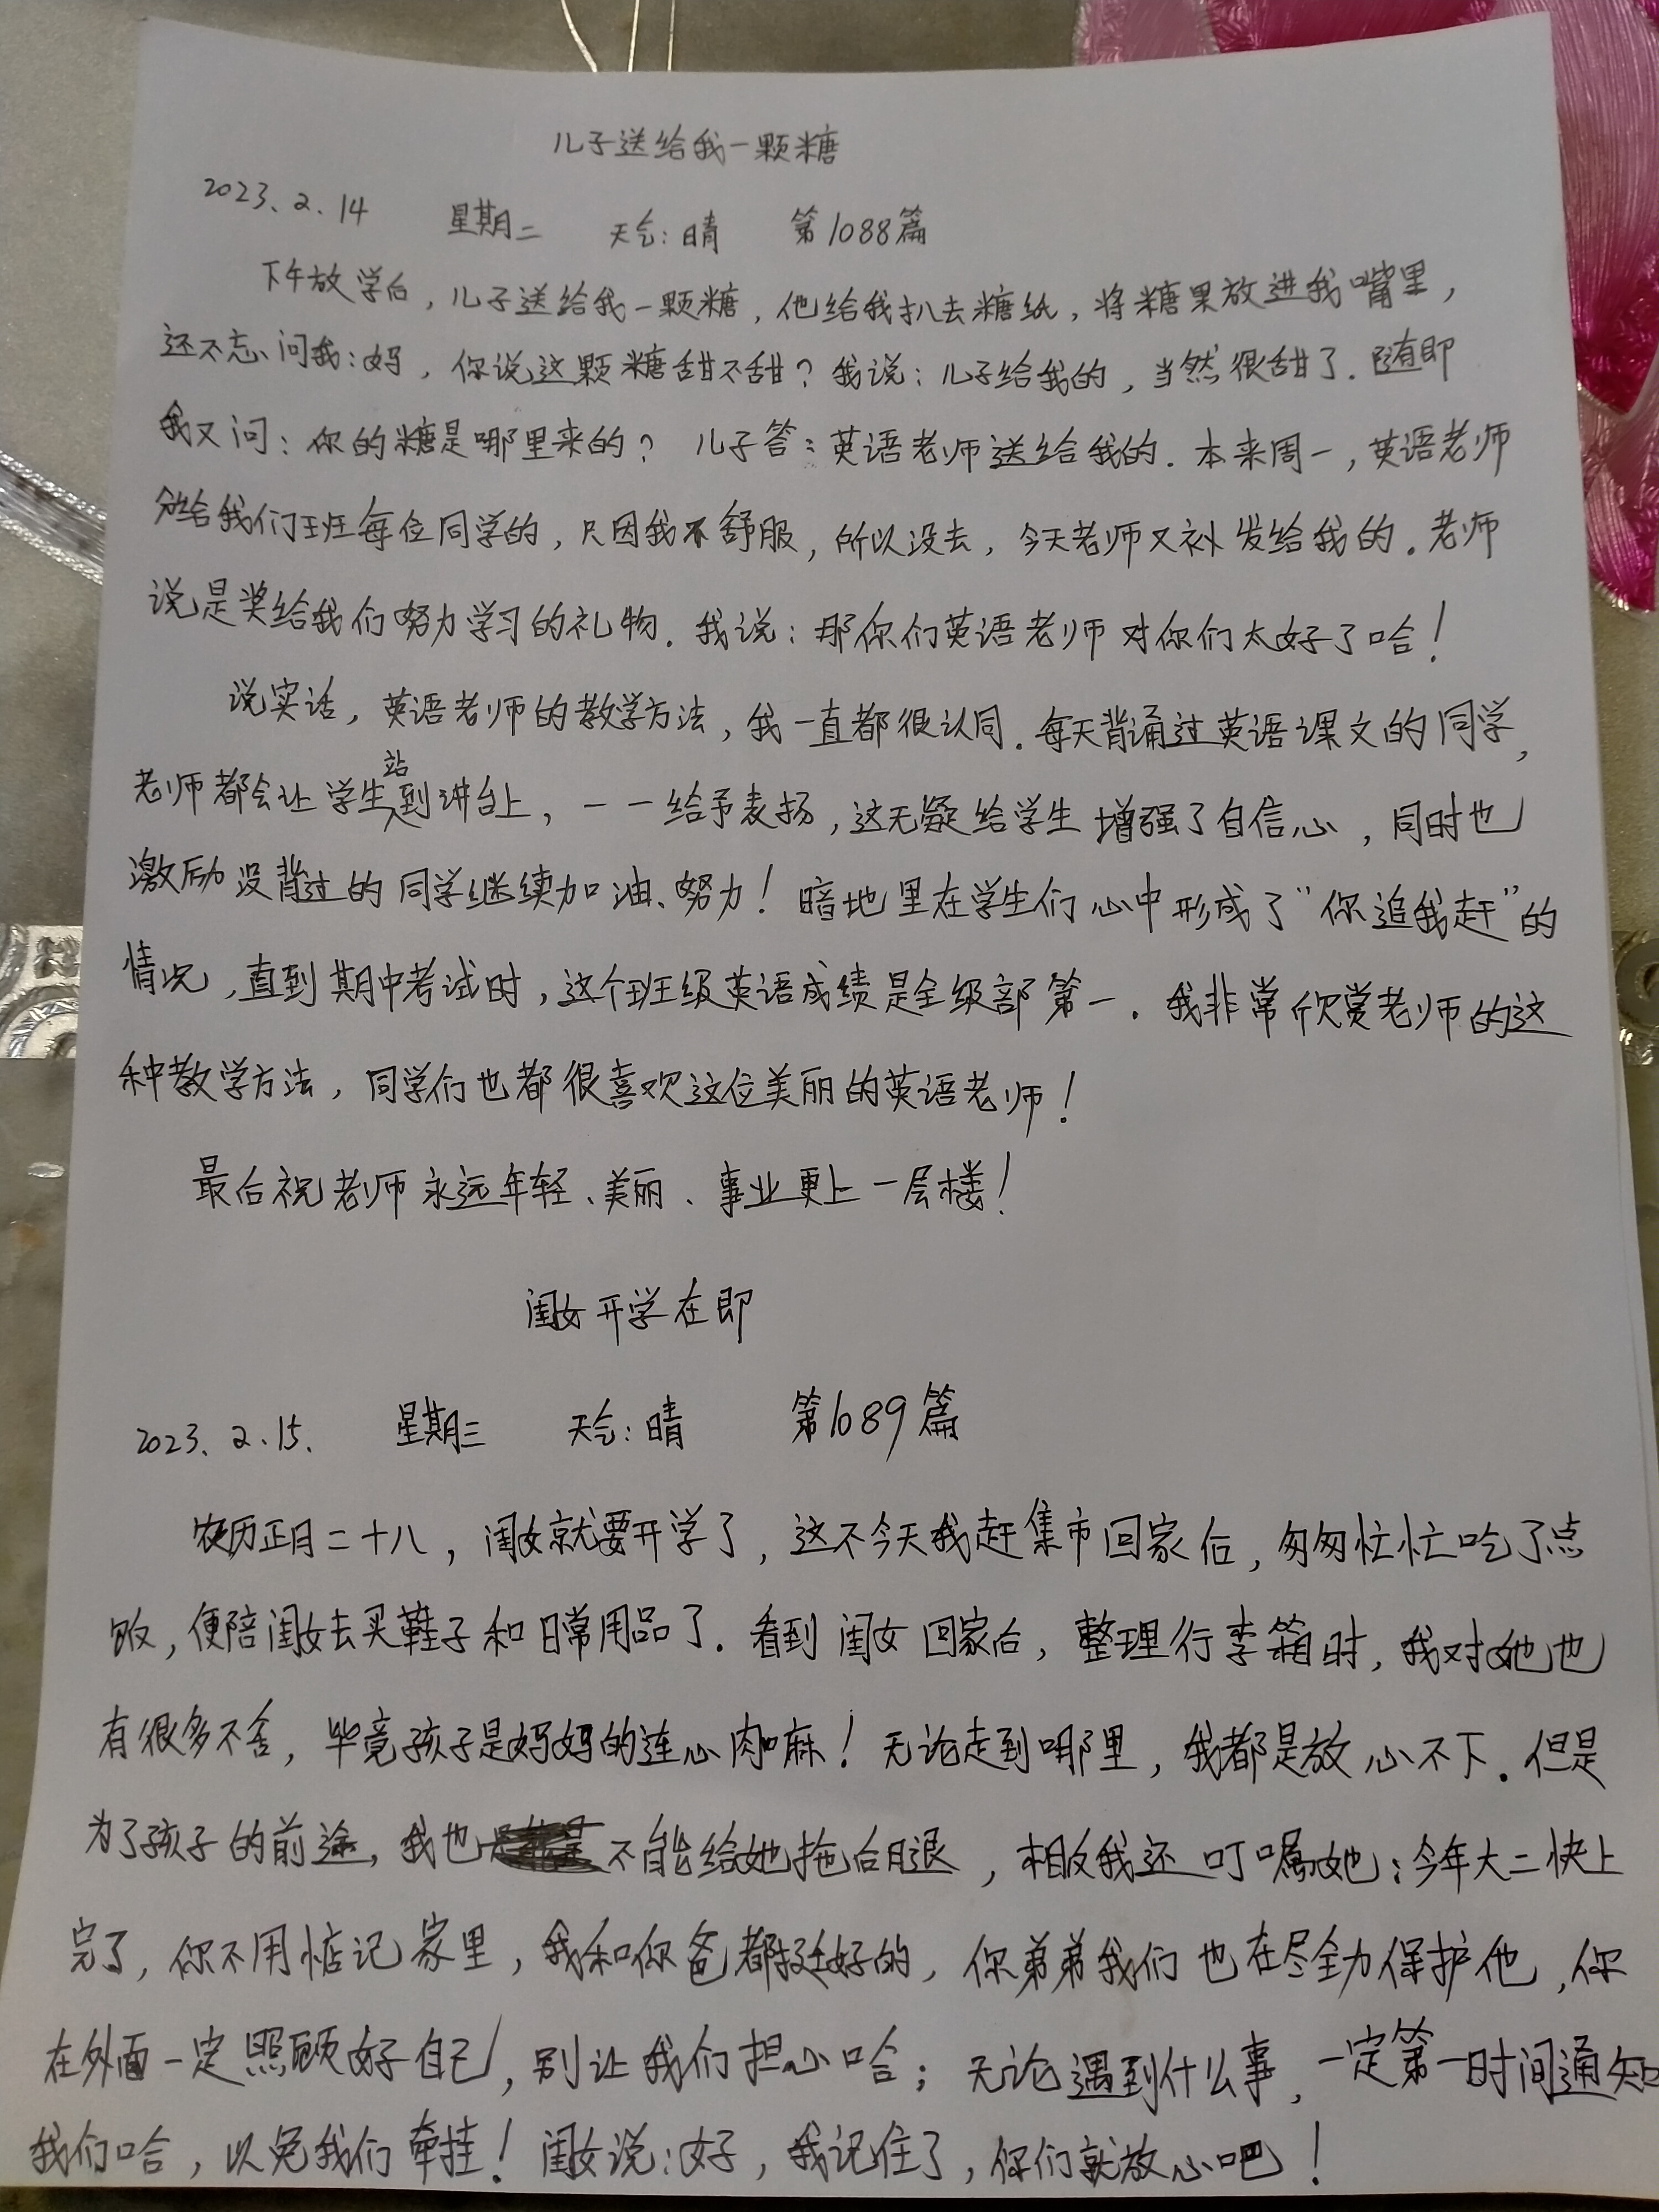 儿子送给我一颗糖
2023.2.14 星期二 天气:晴 第1088篇
下午放学后,儿子送给我一颗糖,他给我扒去糖纸,将糖果放进我嘴里,
还不忘问我:妈,你说这颗糖甜不甜?我说:儿子给我的,当然很甜了.随即
我又问:你的糖是哪里来的? 儿子答:英语老师送给我的.本来周一,英语老师
分给我们班每位同学的,只因我不舒服,所以没去,今天老师又补发给我的.老师
说是奖给我们努力学习的礼物.我说:那你们英语老师对你们太好了哈!
说实话,英语老师的教学方法,我一直都很认同.每天背诵过英语课文的同学,
老师都会让学生站到讲台上,一一给予表扬,这无疑给学生增强了自信心,同时也
激励没背过的同学继续加油、努力!暗地里在学生们心中形成了“你追我赶”的
情况,直到期中考试时,这个班级英语成绩是全级部第一.我非常欣赏老师的这
种教学方法,同学们也都很喜欢这位美丽的英语老师!
最后祝老师永远年轻、美丽、事业更上一层楼!
闺女开学在即
2023.2.15. 星期三 天气:晴 第1089篇
农历正月二十八,闺女就要开学了,这不今天我赶集市回家后,匆匆忙忙吃了点
饭,便陪闺女去买鞋子和日常用品了.看到闺女回家后,整理行李箱时,我对她也
有很多不舍,毕竟孩子是妈妈的连心肉嘛!无论走到哪里,我都是放心不下.但是
为了孩子的前途,我也不能给她拖后腿,相反我还叮嘱她:今年大二快上
完了,你不用惦记家里,我和你爸都挺好的,你弟弟我们也在尽全力保护他,你
在外面一定照顾好自己,别让我们担心哈;无论遇到什么事,一定第一时间通知
我们哈,以免我们牵挂!闺女说:好,我记住了,你们就放心吧!